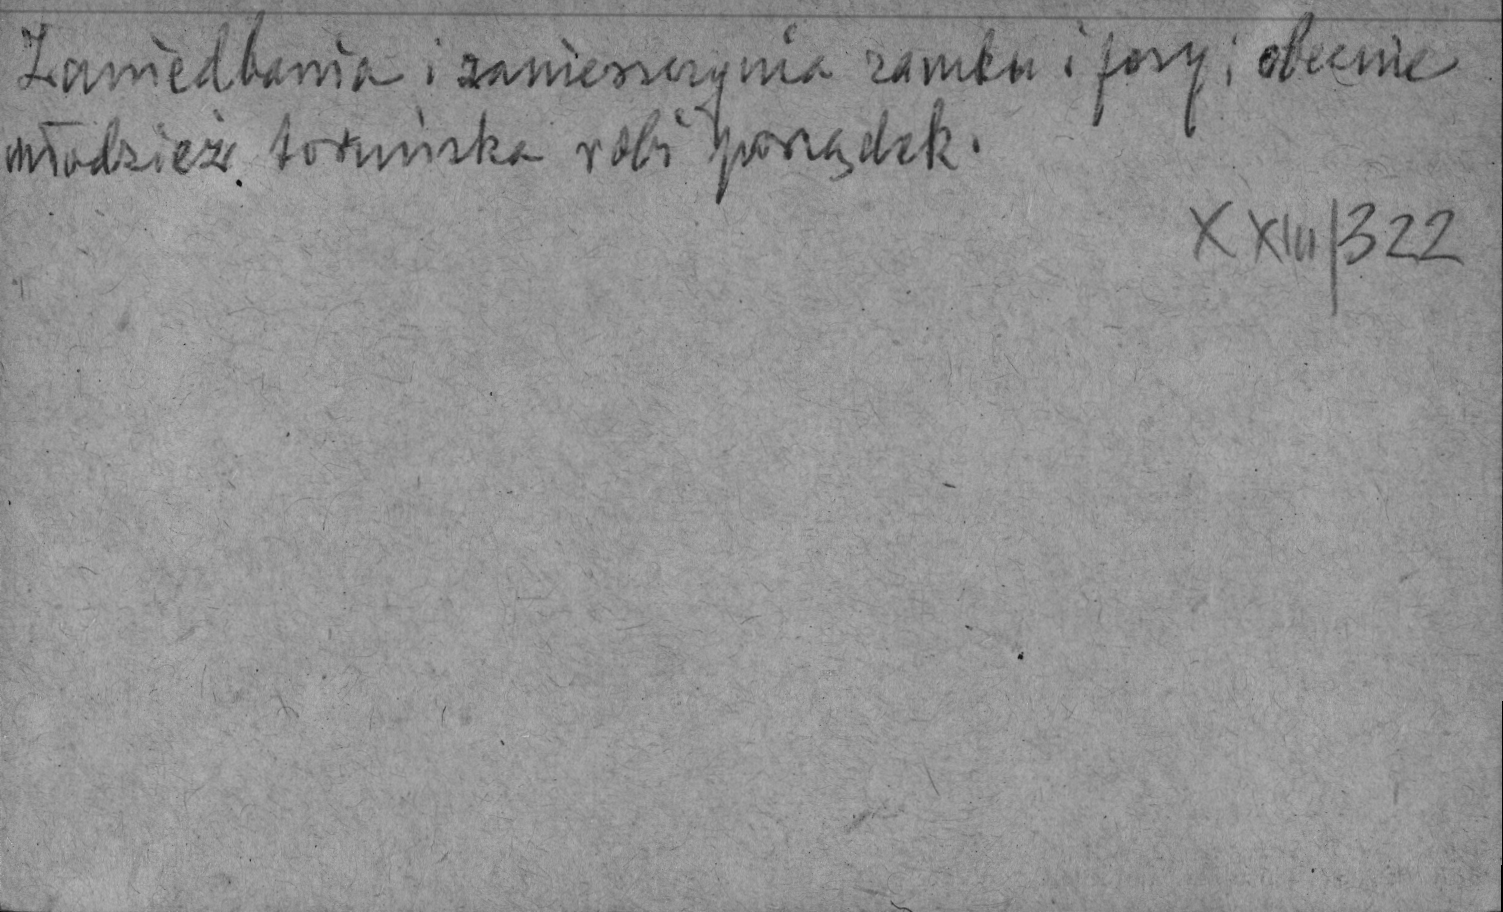 Zaniedbania i zanieszczynia zamku i fosy; obecnie
młodzież toruńska robi porządek.
XXIII/322